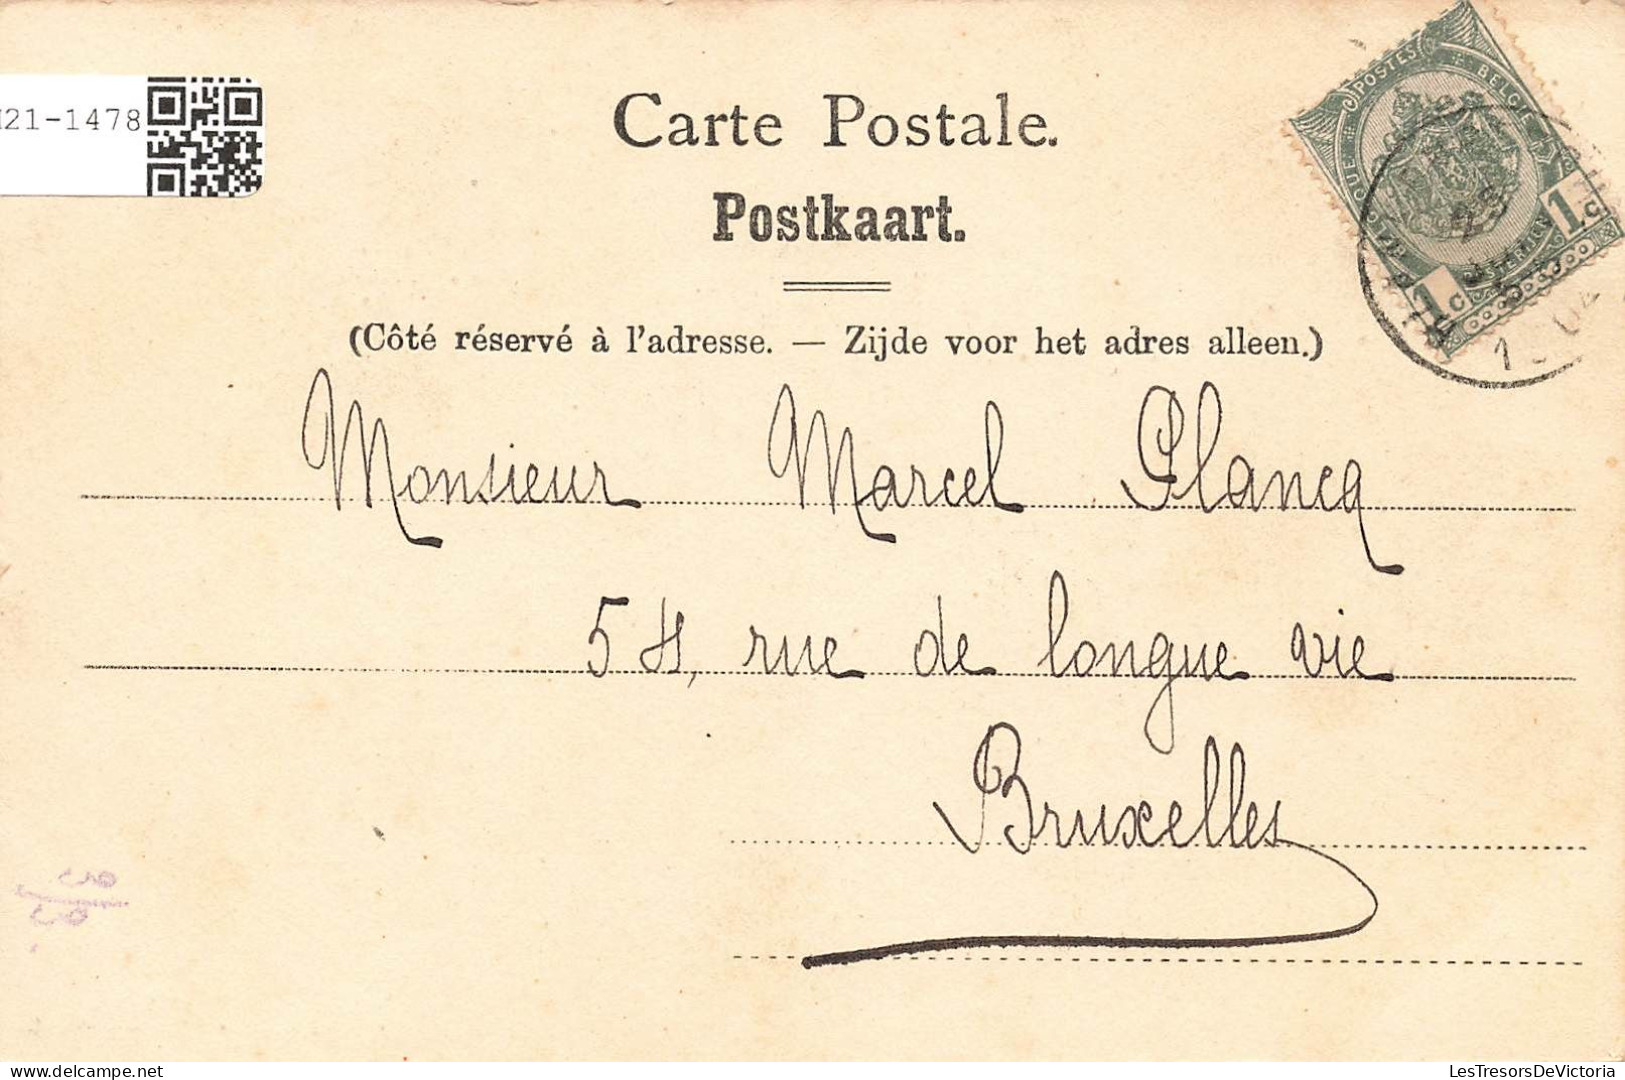 21-1478
Carte Postale.
Postkaart.
(Côté réservé à l'adresse. — Zijde voor het adres alleen.)
POSTES BELGIQUE
1c 1c
Monsieur Marcel Plancq
54, rue de longue vie
Bruxelles
LesTresorsDeVictoria